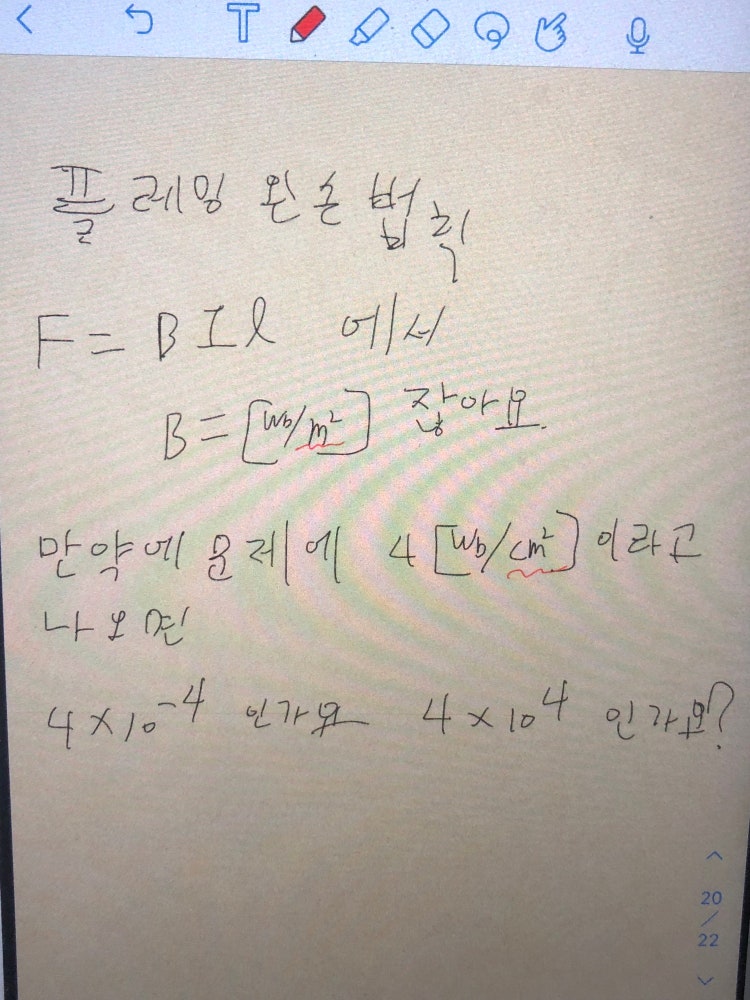 T
플레밍 왼손 법칙
F = B I l 에서
B = [Wb/m²] 잖아요.
만약에 문제에 4 [Wb/cm²] 이라고
나오면
4 × 10⁻⁴ 인가요 4 × 10⁴ 인가요?
20
/
22